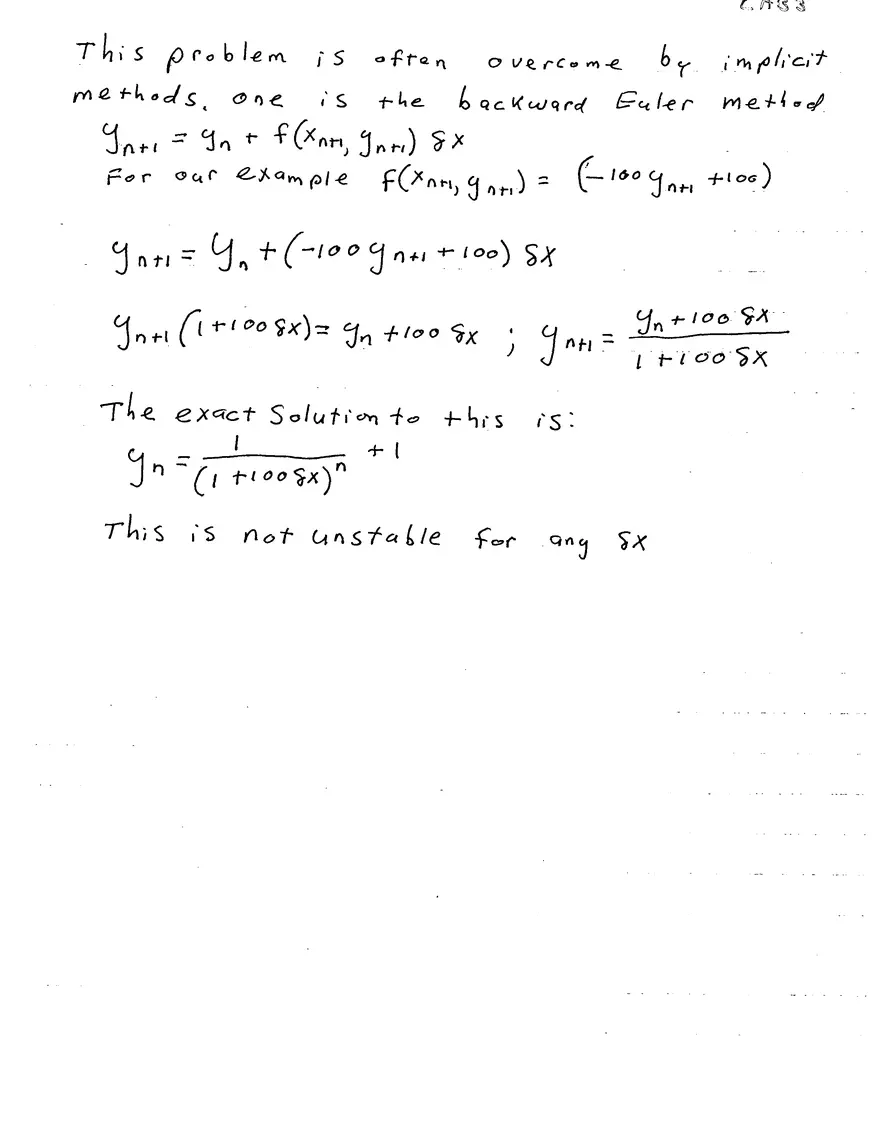 This problem is often overcome by implicit
methods. one is the backward Euler method
y_{n+1} = y_n + f(x_{n+1}, y_{n+1}) δx
For our example f(x_{n+1}, y_{n+1}) = (-100 y_{n+1} +100)
y_{n+1} = y_n + (-100 y_{n+1} + 100) δx
y_{n+1} (1+100 δx) = y_n +100 δx ; y_{n+1} = \frac{y_n + 100 δx}{1 + 100 δx}
The exact Solution to this is:
y_n = \frac{1}{(1 +100 δx)^n} + 1
This is not unstable for any δx